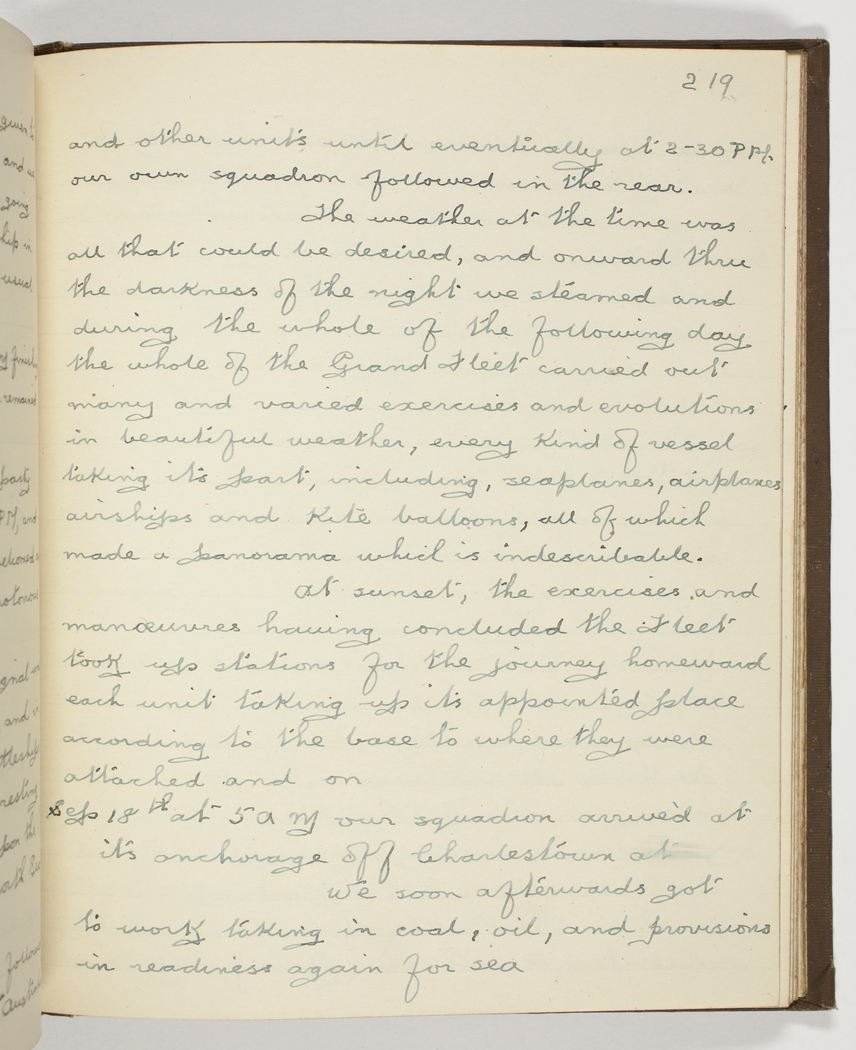 219
and other units until eventually at 2-30 PM.
our own squadron followed in the rear.
The weather at the time was
all that could be desired, and onward thru
the darkness of the night we steamed and
during the whole of the following day
the whole of the Grand Fleet carried out
many and varied exercises and evolutions
in beautiful weather, every kind of vessel
taking its part, including, seaplanes, airplanes
airships and Kite balloons, all of which
made a panorama which is indescribable.
At sunset, the exercises and
manœuvres having concluded the Fleet
took up stations for the journey homeward
each unit taking up its appointed place
according to the base to where they were
attached and on
Sep 18th at 5 a M our squadron arrived at
its anchorage off Charlestown at
We soon afterwards got
to work taking in coal, oil, and provisions
in readiness again for sea
given
and
going
ship in
usual
remained
party
PM, and
and
resting
upon the
follow